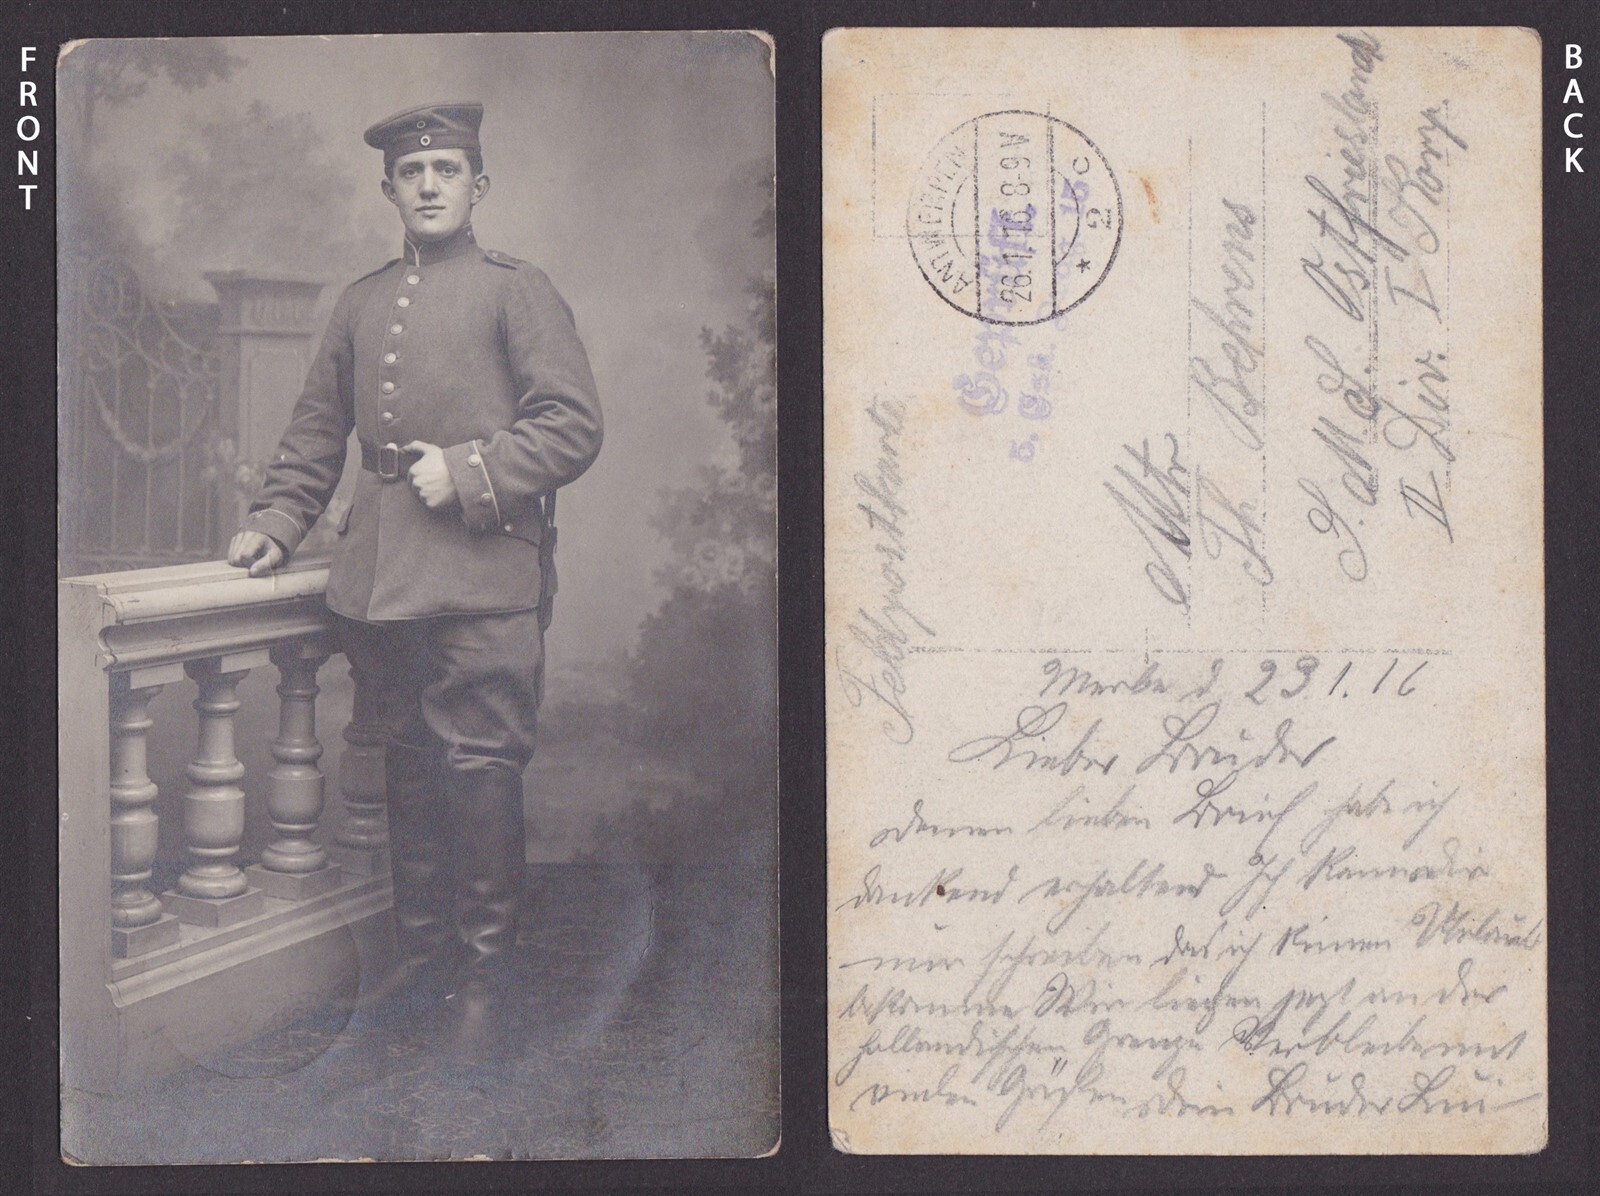 FRONT
BACK
ANTWERPEN
26.1.16. 8-9 V
c
2
Geprüft
5.
Feldpostkarte
Mtr
Th Behrens
S. M. S. Ostfriesland
II Div. I Komp.
Merbe d 23.1.16
Lieber Bruder
deinen lieben Brief habe ich
dankend erhalten Ich kann dir
nur schreiben das ich keinen Urlaub
bekomme Wir liegen jezt an der
holländischen Grenze Verbleibe mit
vielen Grüßen dein Bruder